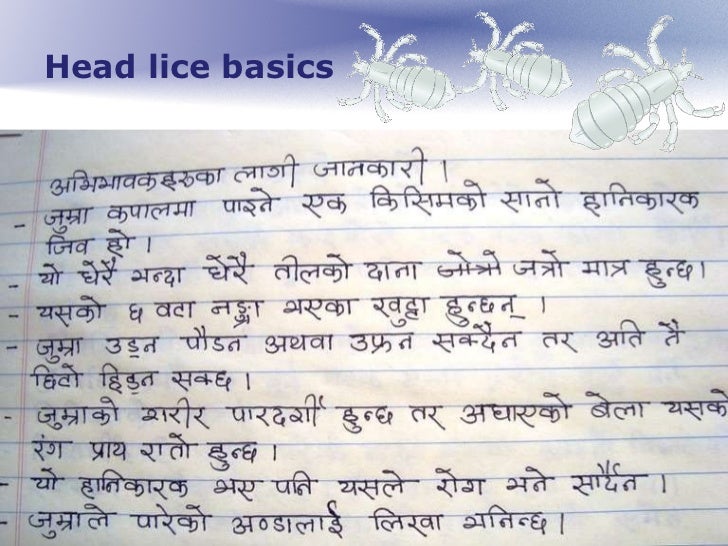 Head lice basics
अभिभावकहरुका लागी जानकारी ।
- जुम्रा कपालमा पाइने एक किसिमको सानो हानिकारक
जिव हो ।
- यो धेरै भन्दा धेरै तीलको दाना जत्रो मात्र हुन्छ।
- यसको ६ वटा नङ्ग्रा भएका खुट्टा हुन्छन् ।
- जुम्रा उड्न पौडन अथवा उफ्रन सक्दैन तर अति नै
छिटो हिड्न सक्छ ।
- जुम्राको शरीर पारदर्शी हुन्छ तर अघाएको बेला यसको
रंग प्राय रातो हुन्छ ।
- यो हानिकारक भए पनि यसले रोग भने सार्दैन ।
- जुम्राले पारेको अण्डालाई लिखा भनिन्छ।